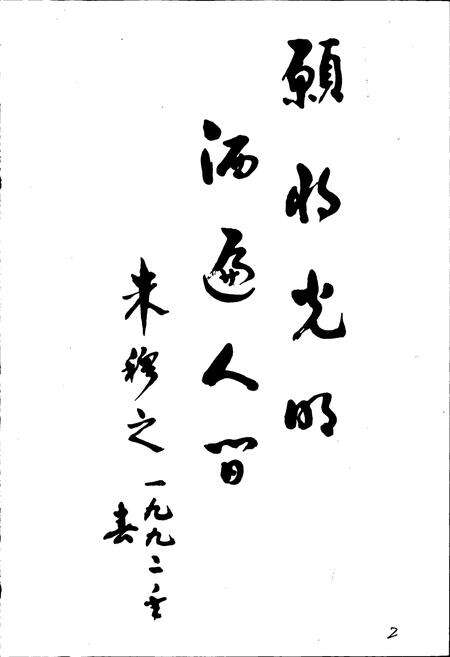 願将光明
洒遍人间
朱穆之
一九九二年
春
2